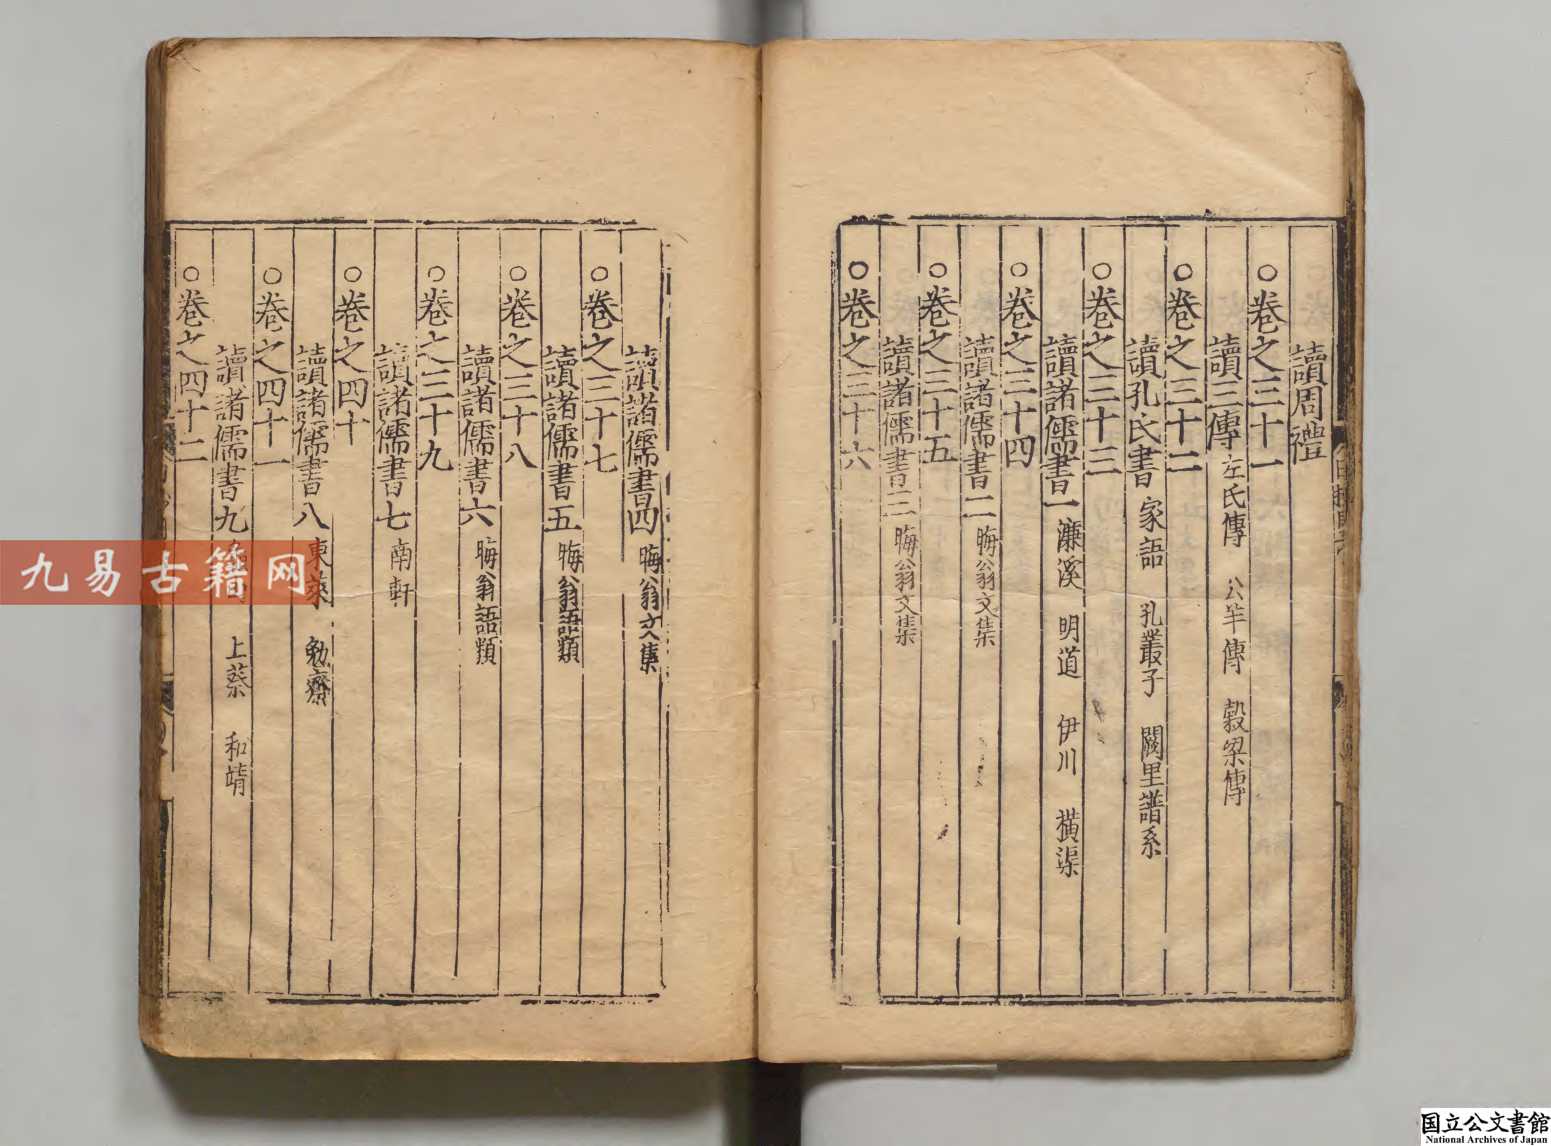 讀周禮
○卷之三十一
讀三傳 左氏傳 公羊傳 穀梁傳
○卷之三十二
讀孔氏書 家語 孔叢子 闕里譜系
○卷之三十三
讀諸儒書一 濂溪 明道 伊川 橫渠
○卷之三十四
讀諸儒書二 晦翁文集
○卷之三十五
讀諸儒書三 晦翁文集
○卷之三十六
讀諸儒書四 晦翁文集
○卷之三十七
讀諸儒書五 晦翁語類
○卷之三十八
讀諸儒書六 晦翁語類
○卷之三十九
讀諸儒書七 南軒
○卷之四十
讀諸儒書八 東萊 勉齋
○卷之四十一
讀諸儒書九 上蔡 和靖
○卷之四十二
九易古籍网
国立公文書館
National Archives of Japan